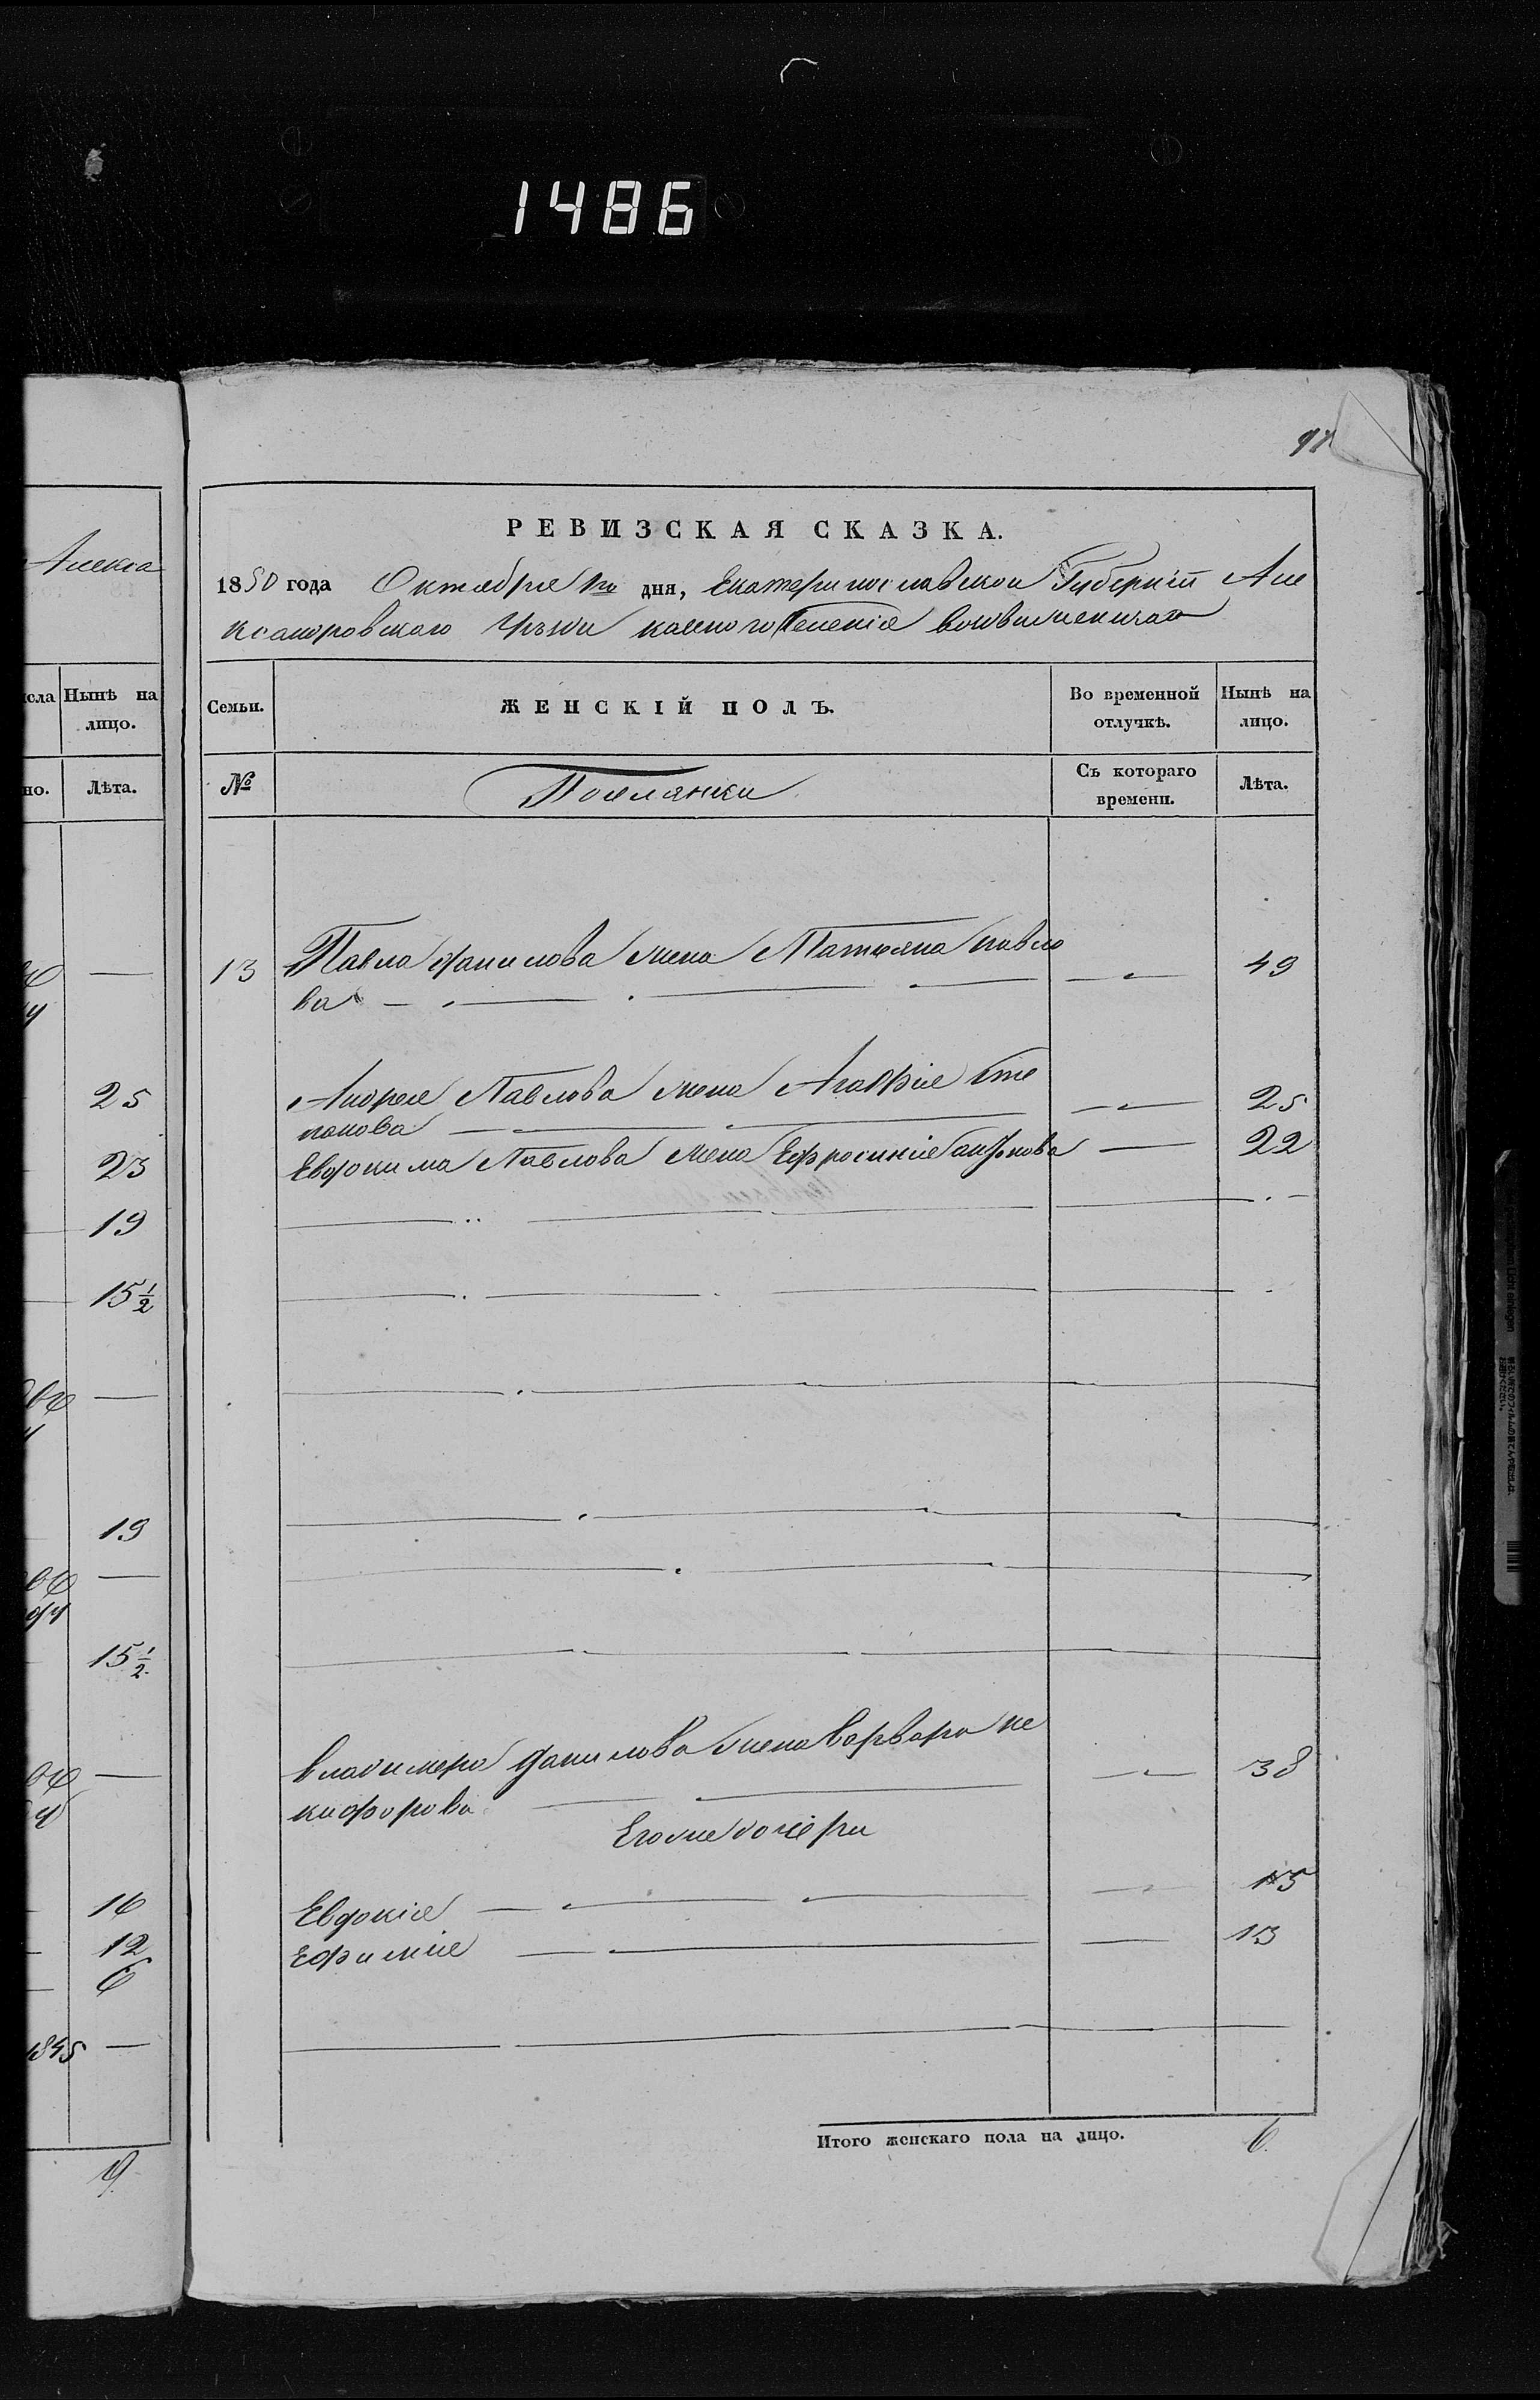 1486
Алекса
сла Нынѣ на
лицо.
но. Лѣта.
25
23
19
15½
19
15½
16
12
6
1845
9.
РЕВИЗСКАЯ СКАЗКА.
1850 года Октября 1го дня, Екатеринославской Губерніи Але
ксандровскаго уѣзда казенного Селенія
Семьи. ЖЕНСКІЙ ПОЛЪ. Во временной Нынѣ на
отлучкѣ. лицо.
№ Поселянки Съ котораго Лѣта.
времени.
13 Павла Данилова жена Татьяна Павло 49
ва
Андрея Павлова жена Агафія Сте 25
панова
Евдокима Павлова жена Ефросинія 22
Владимера Данилова жена Варвара Не 38
кифорова
Его же дочери
Евдокія 15
Ефимія 13
Итого женскаго пола на лицо. 6.